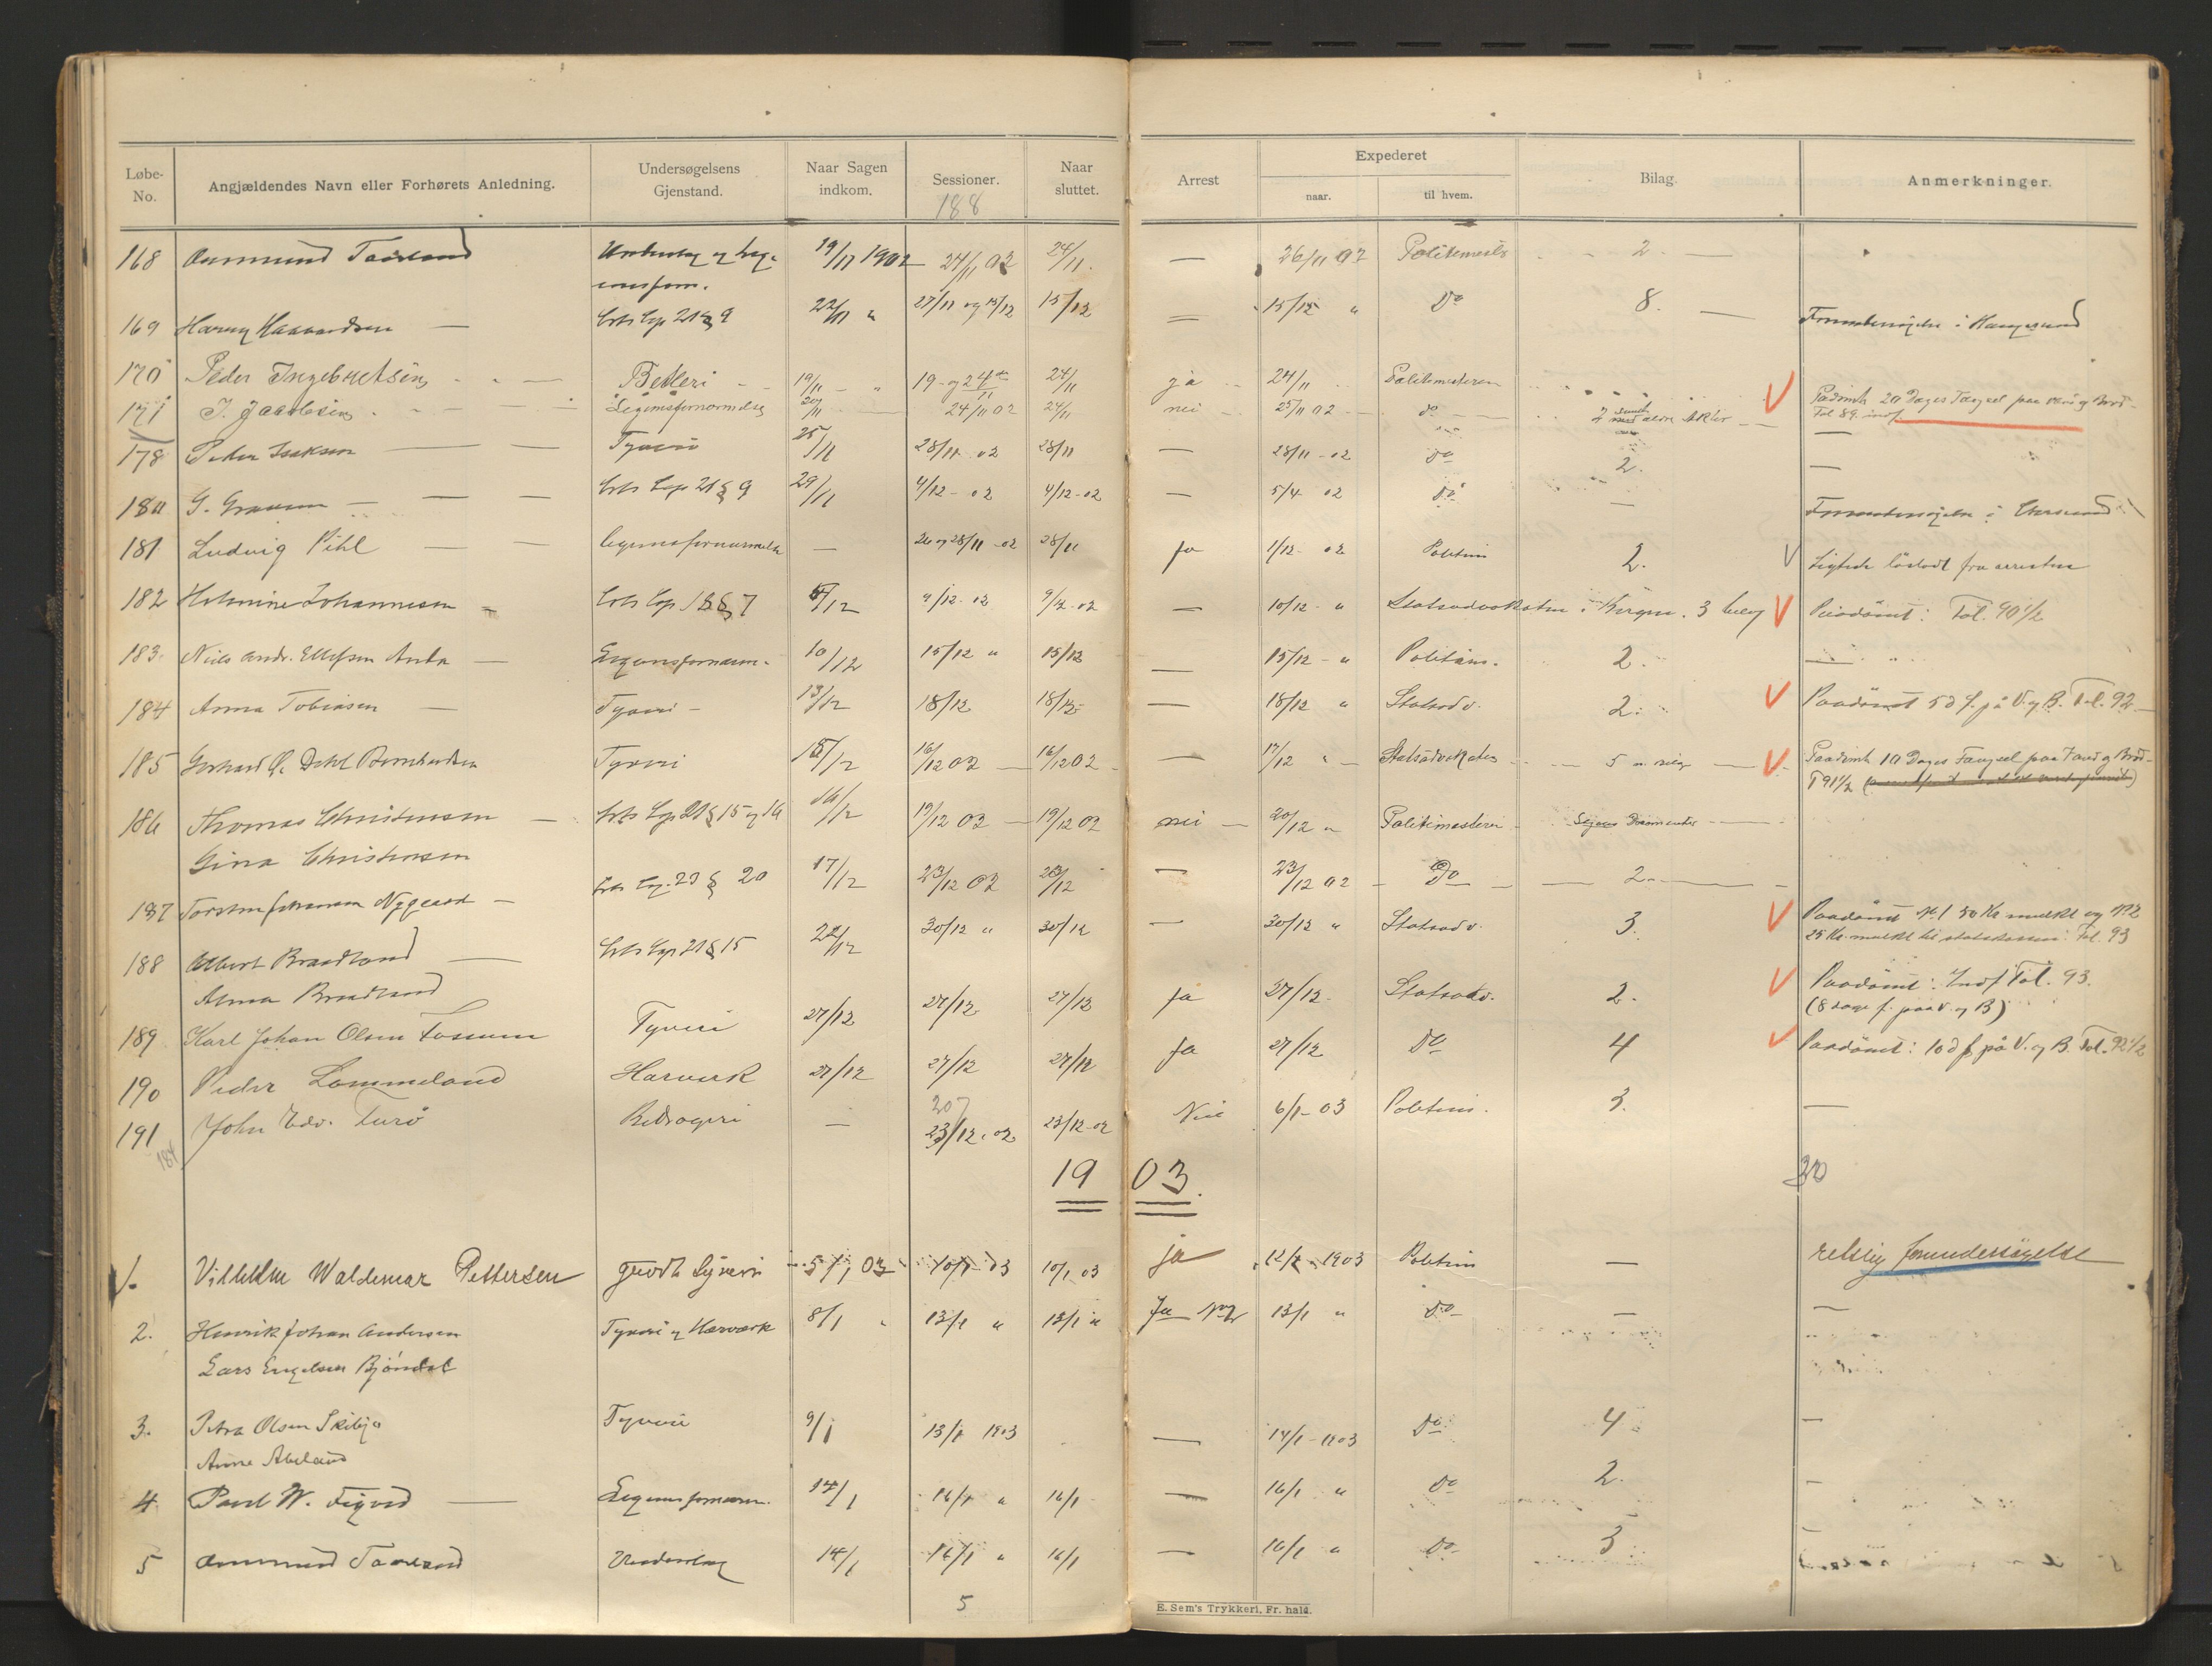 Løbe-No. Angjældendes Navn eller Forhørets Anledning. Undersøgelsens Gjenstand. Naar Sagen indkom. Sessioner. Naar sluttet. Arrest Expederet naar. til hvem. Bilag. Anmerkninger.
188
168 Aamund 19/11 1902 24/11 02 24/11. — 26/11 02 2. —
169 Harry Haavardsen — 21 § 9 22/11 " 27/11 og 15/12 15/12 — 15/12 " Do 8. — Forundersøgelse i Haugesund
170 Peder Ingebretsen Betleri 19/11 — " 19- og 24de 24/11 ja 24/11 Politimesteren Paadømt 20 Dages Fængsel paa Vand og Brød
171 J. Jacobsen Legemsfornærmelse 20/11 24/11 02 24/11 nei 25/11 02 do Tol 89.
178 Peder Isaksen — Tyveri 25/11 28/11 02 28/11 — 28/11 - 02 Do 2. —
180 G. — 21 § 9 29/11 4/12 - 02 4/12-02 — 5/4 02 Do — Forundersøgelse i
181 Ludvig Pihl — Legemsfornærmelse — 26 og 28/11 -02 28/11 Ja 1/12- 02 Politim 2. Sigtede løsladt fra arresten
182 Johannesen 18 § 7 /12 9/12-02 9/12-02 — 10/12 - " Statsadvokaten i Bergen. 3 bilag Paadømt: Tol. 90 1/2
183. Niels Andr. Ellefsen — Legemsfornærm. 10/12 15/12 " 15/12 — 15/12 - " Politim. 2. —
184 Anna Tobiasen — Tyveri - 13/12 18/12 18/12 — 18/12 " Statsadv. 2. Paadømt 5 d f. på V. og B. Tol. 92
185 Gerhard Dahl Berntsen Tyveri 15/12 16/12 02 — 16/12 02 — 17/12 " - Statsadvokaten 5 — Paadømt 10 Dages Fængsel paa Vand og Brød -
T 91 1/2
186 Thomas Christensen — 21 § 15 og 16 16/12 19/12 02 — 19/12 02 nei — 20/12 " Politimesteren Dokumenter
Gina Christensen
187 Torsten Johannsen Nygaard - 23 § 20 17/12 23/12 02 23/12 — 23/12 02 - Do — 2.
188 Albert Braadland — 21 § 15 22/12 30/12 " 30/12 — 30/12 " Statsadv. 3. Paadømt № 1 50 Kr mulkt og № 2
25 Kr. mulkt til statskassen. Tol. 93
Anna Braadland
189 Karl Johan Olsen Fossum Tyveri 27/12 27/12 27/12 Ja 27/12 Statsadv. 2. Paadømt: Indf Tol. 93.
(8 dage f. paa V. og B)
190 Peder Lommeland Hærverk 27/12 27/12 27/12 Ja 27/12 Do 4 Paadømt: 10 d f på V. og B. Tol. 92 1/2
207
191 John Edv. Turø Bedrageri — 23/12-02 23/12-02 Nei 6/1- 03 Politim. 3. —
184
1903. 30
1. Vilhelm Waldemar Pettersen grovt Tyveri 5/1 03 10/1-03 10/1 03 ja 12/1 1903 Politim — retslig forundersøgelse
2. Henrik Johan Andersen Tyveri og Hærværk 8/1 " 13/1 " 13/1 " Ja No 2 13/1 " Do — —
Lars Engelsen Bjørndal
3. Petra Olsen Tyveri 9/1 13/1 1903 — 14/1-1903 Do 4 —
Anne Abeland
4 Paul W. — Legemsfornærm. 14/1 16/1 " 16/1 — 16/1 " Do 2. —
5 Aamund Underslag 14/1 16/1 " 16/1 — 16/1 " Do 3 —
5
E. Sem's Trykkeri, Fr. hald.